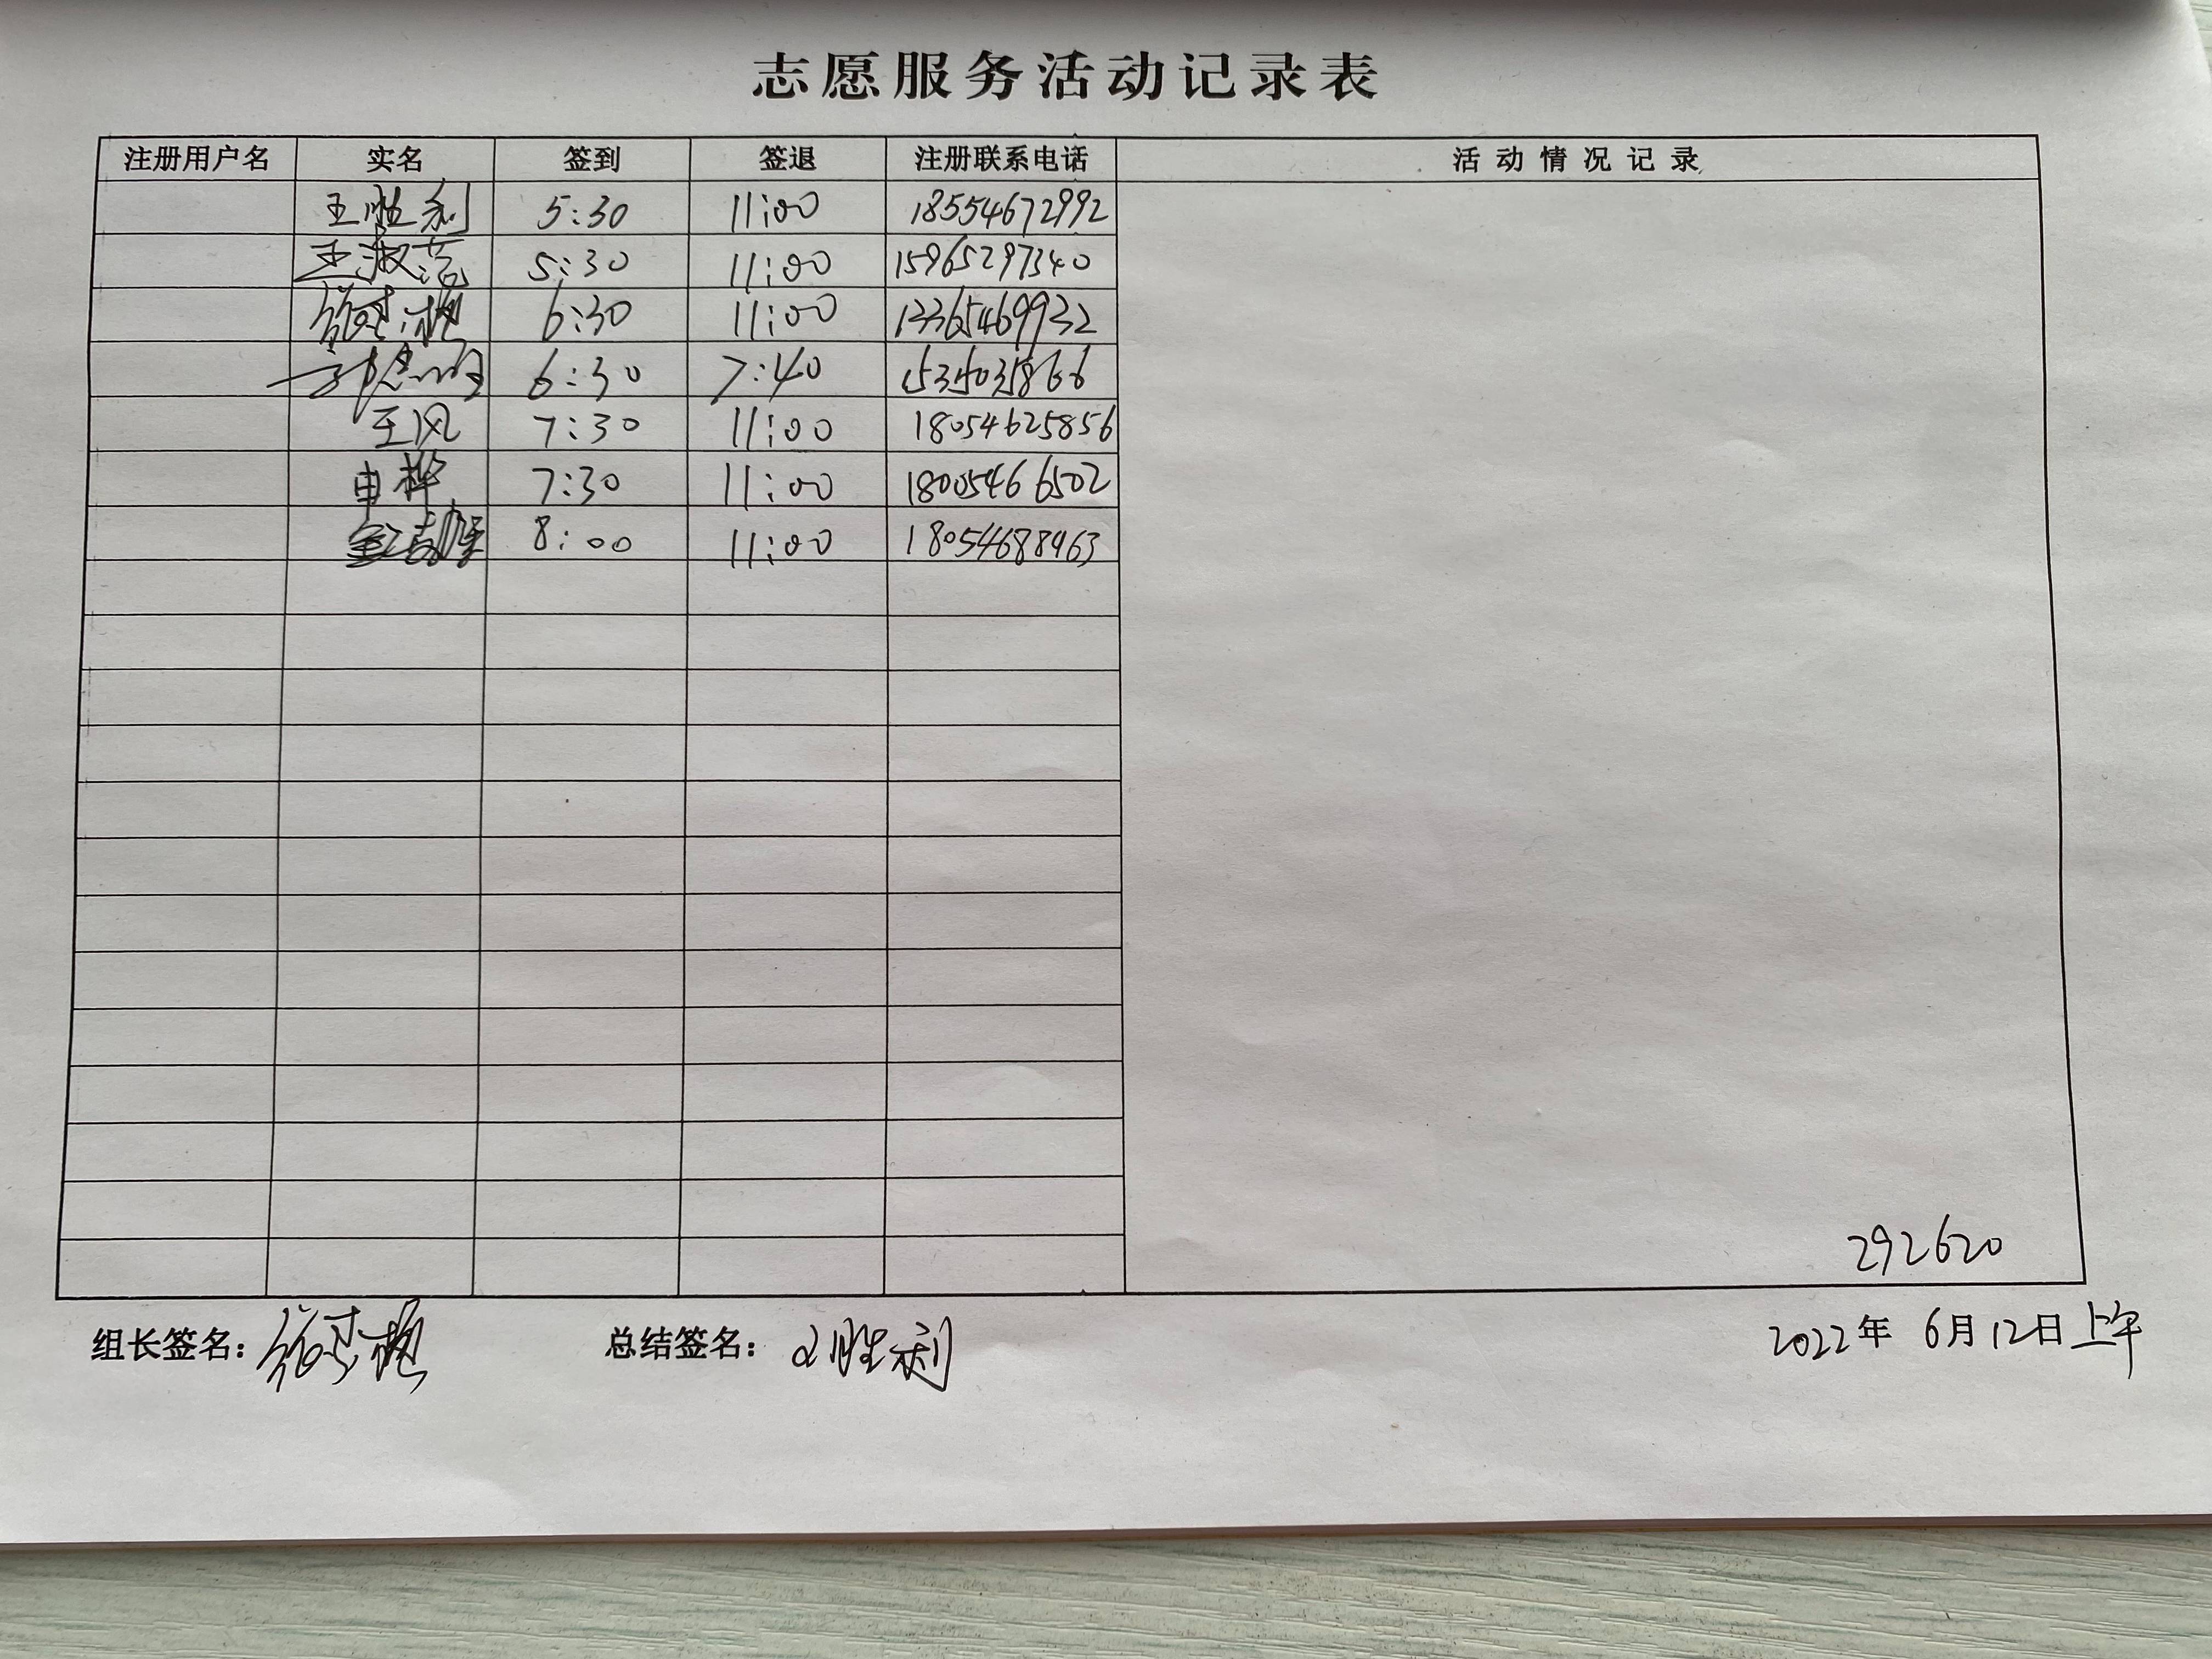 志愿服务活动记录表
注册用户名 实名 签到 签退 注册联系电话 活动情况记录
王胜利 5:30 11:00 18554672992
王淑 5:30 11:00 15965297340
6:30 11:00 13365469932
6:30 7:40
王风 7:30 11:00 18054625856
申桦 7:30 11:00 18005466502
8:00 11:00 18054688963
292620
组长签名: 总结签名: 王胜利 2022年 6月12日上午